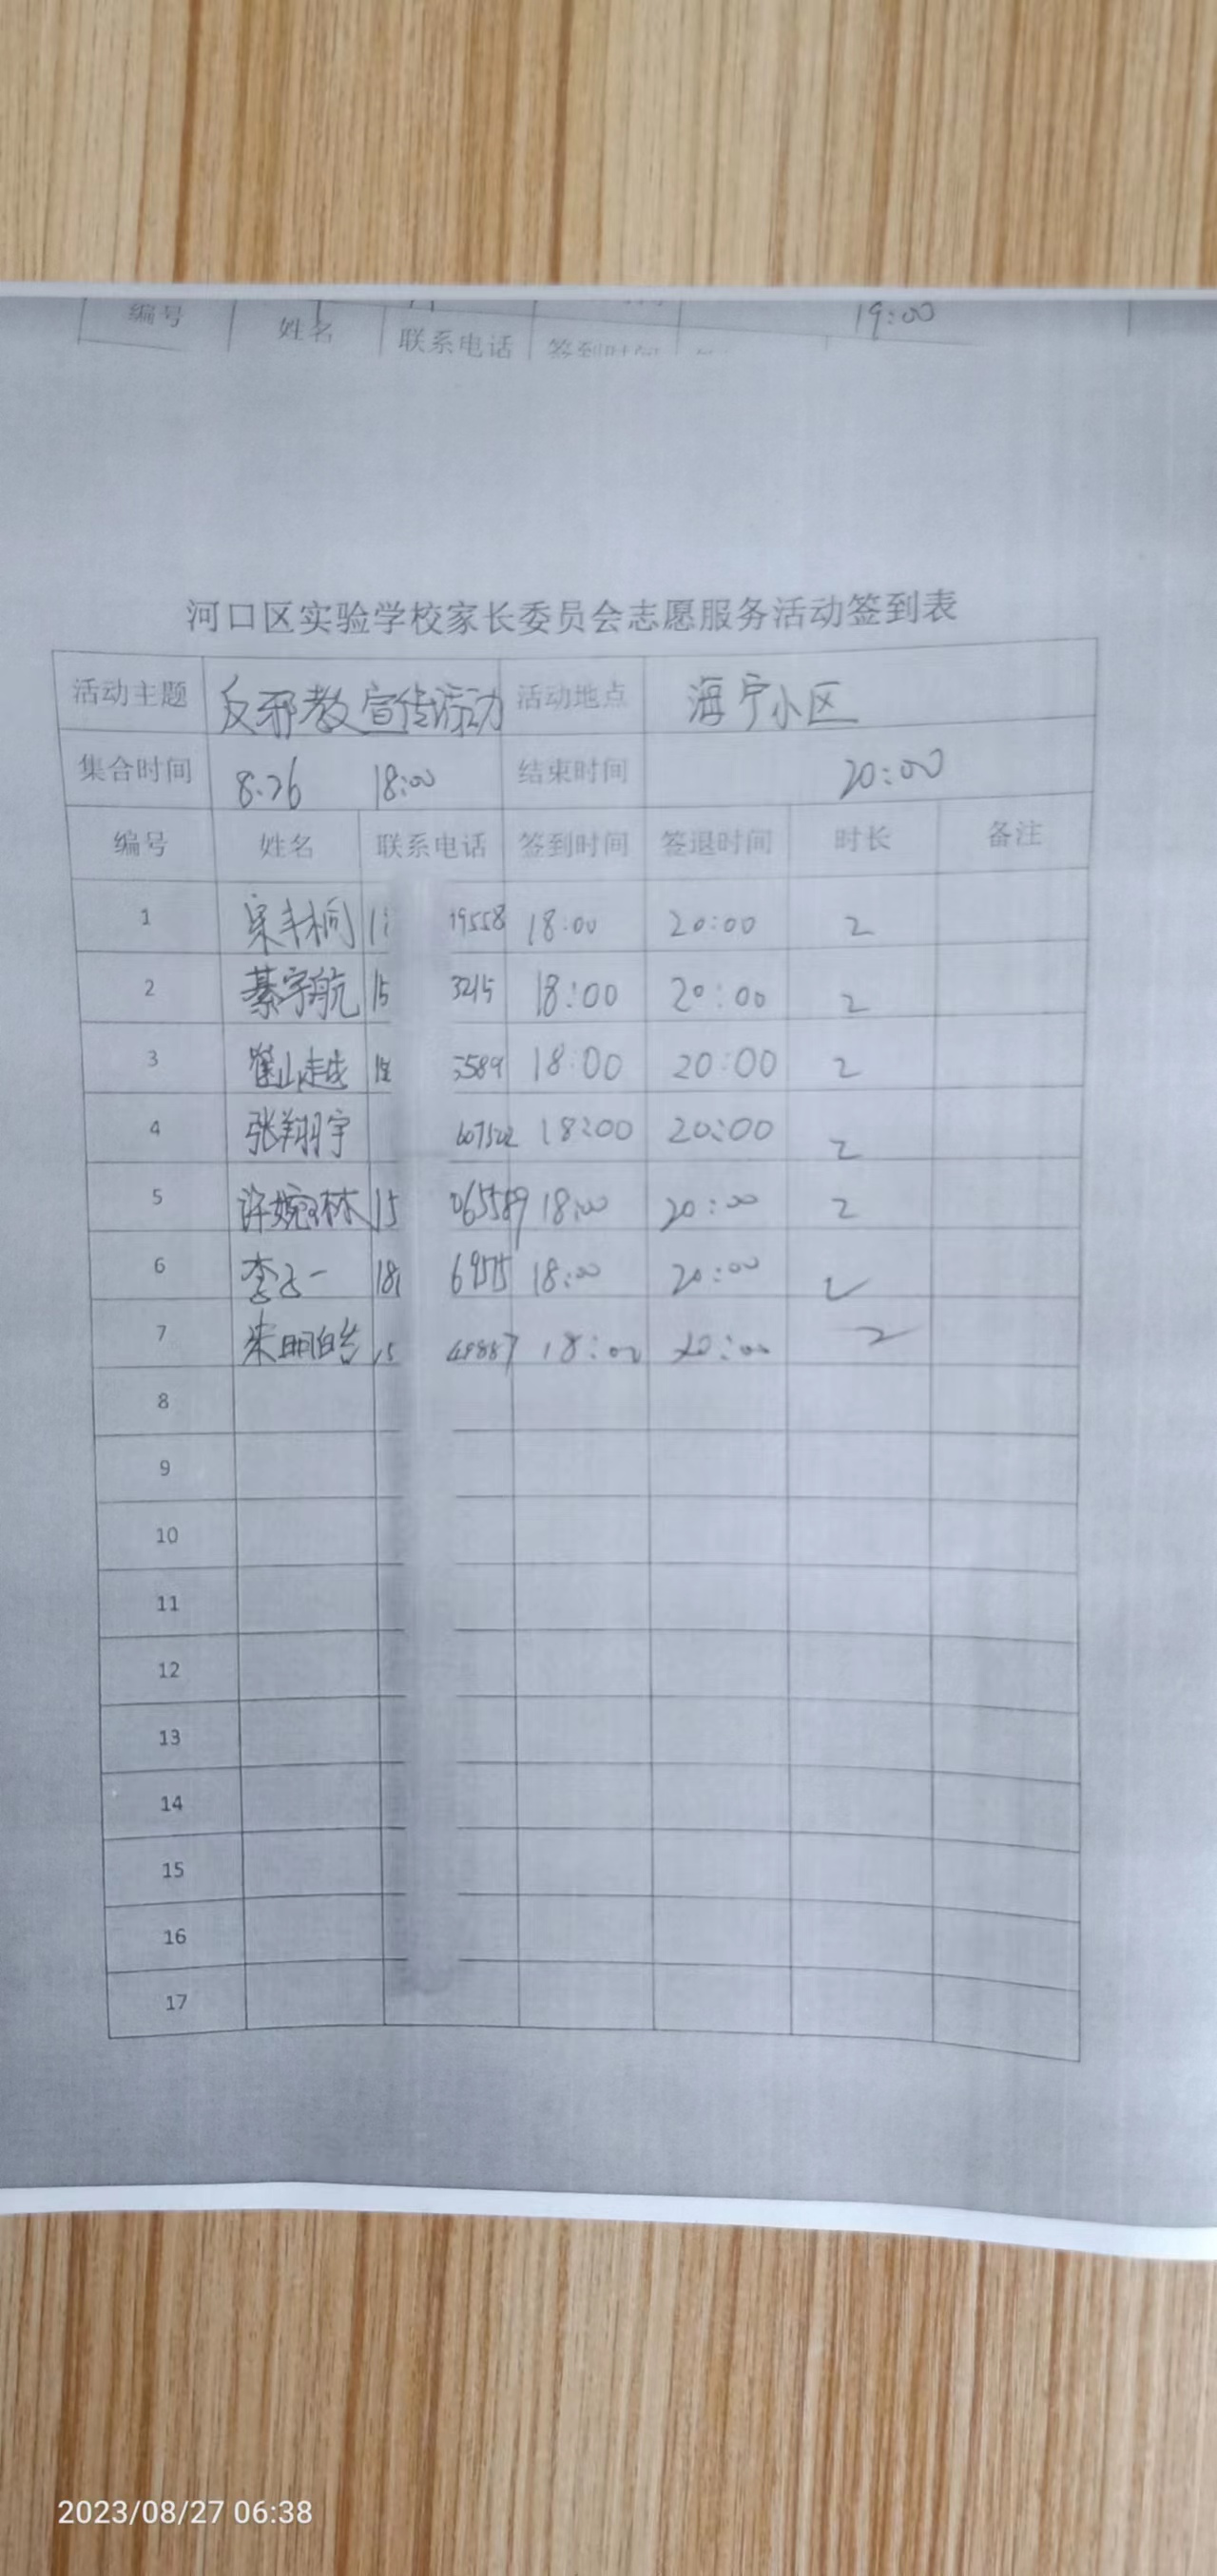 编号 姓名 联系电话 签到时间 19:00
河口区实验学校家长委员会志愿服务活动签到表
活动主题 反邪教宣传活动 活动地点 海宁小区
集合时间 8.26 18:00 结束时间 20:00
编号 姓名 联系电话 签到时间 签退时间 时长 备注
1 宋丰桐 19558 18:00 20:00 2
2 綦宇航 15 3215 18:00 20:00 2
3 589 18:00 20:00 2
4 张翔宇 18:00 20:00 2
5 许婉琳 15 065589 18:00 20:00 2
6 李子一 18 18:00 20:00 2
7 15 18:00 20:00 2
8
9
10
11
12
13
14
15
16
17
2023/08/27 06:38